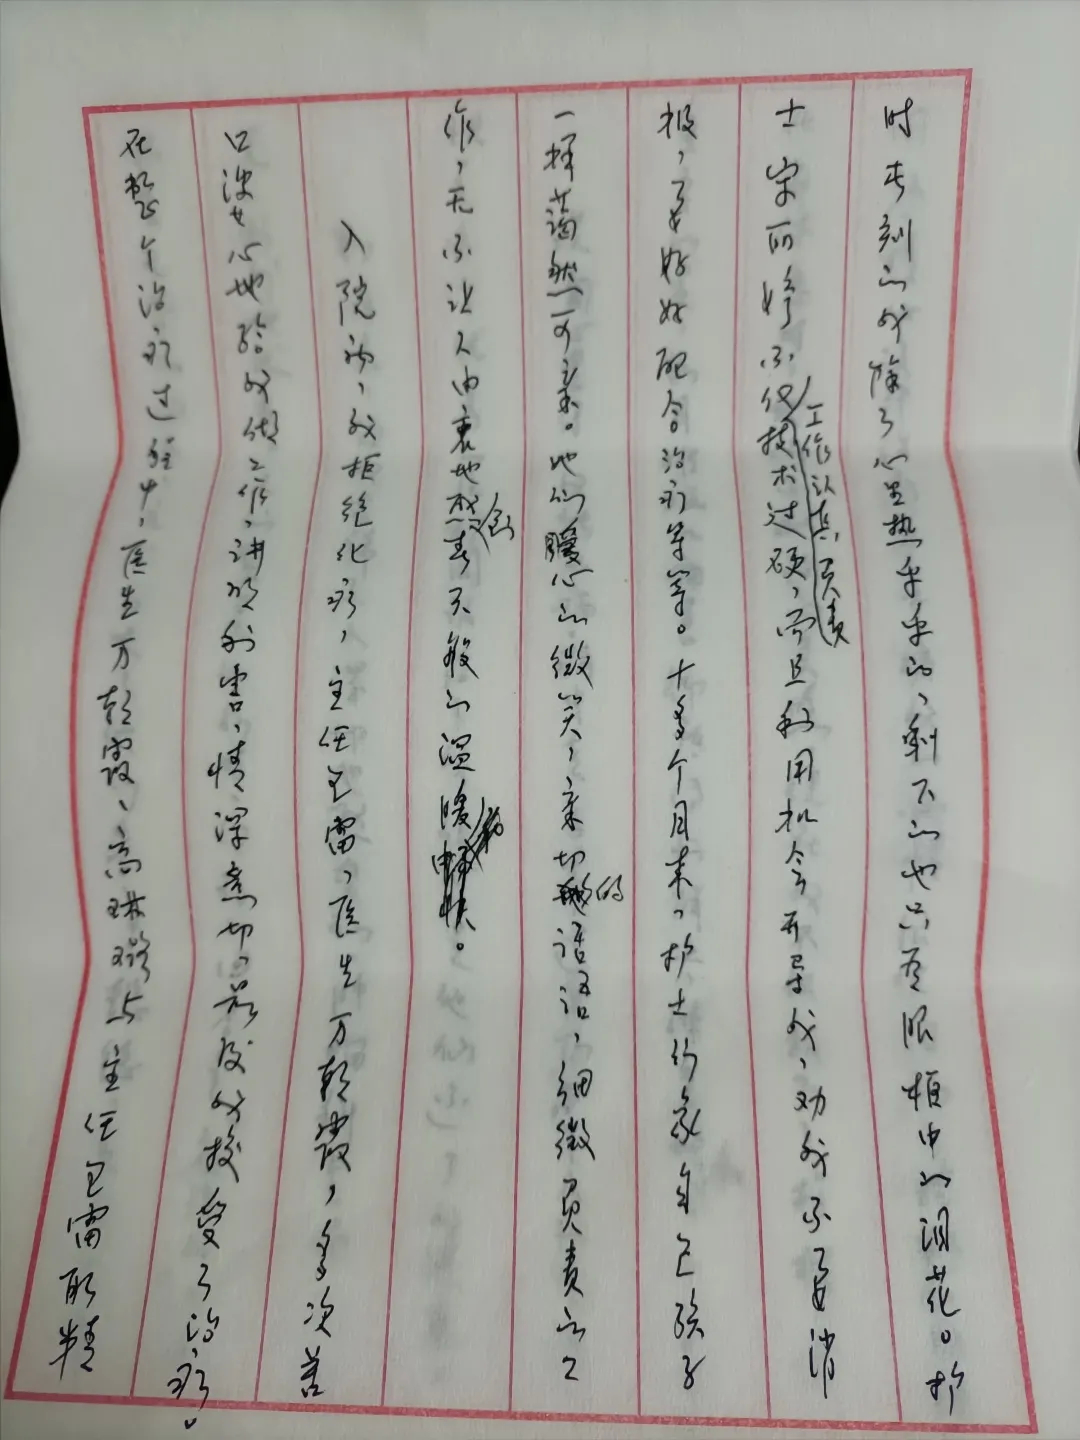 时此刻的我除了心里热乎乎的，剩下的也只有眼框中的泪花。护
士宋丽婷不仅工作认真负责技术过硬，而且利用机会开导我，劝我不要消
极，要好好配合治疗等等。十多个月来，护士们象自己孩子
一样蔼然可亲。她们暖心的微笑，亲切的话语，细微负责的工
作，无不让人由衷地感到春天般的温暖。
入院初，我拒绝化疗，主任包雷，医生万朝霞，多次苦
口婆心地给我做工作，讲明利害，情深意切，最后我接受了治疗。
在整个治疗过程中，医生万朝霞、高琳璐与主任包雷都精